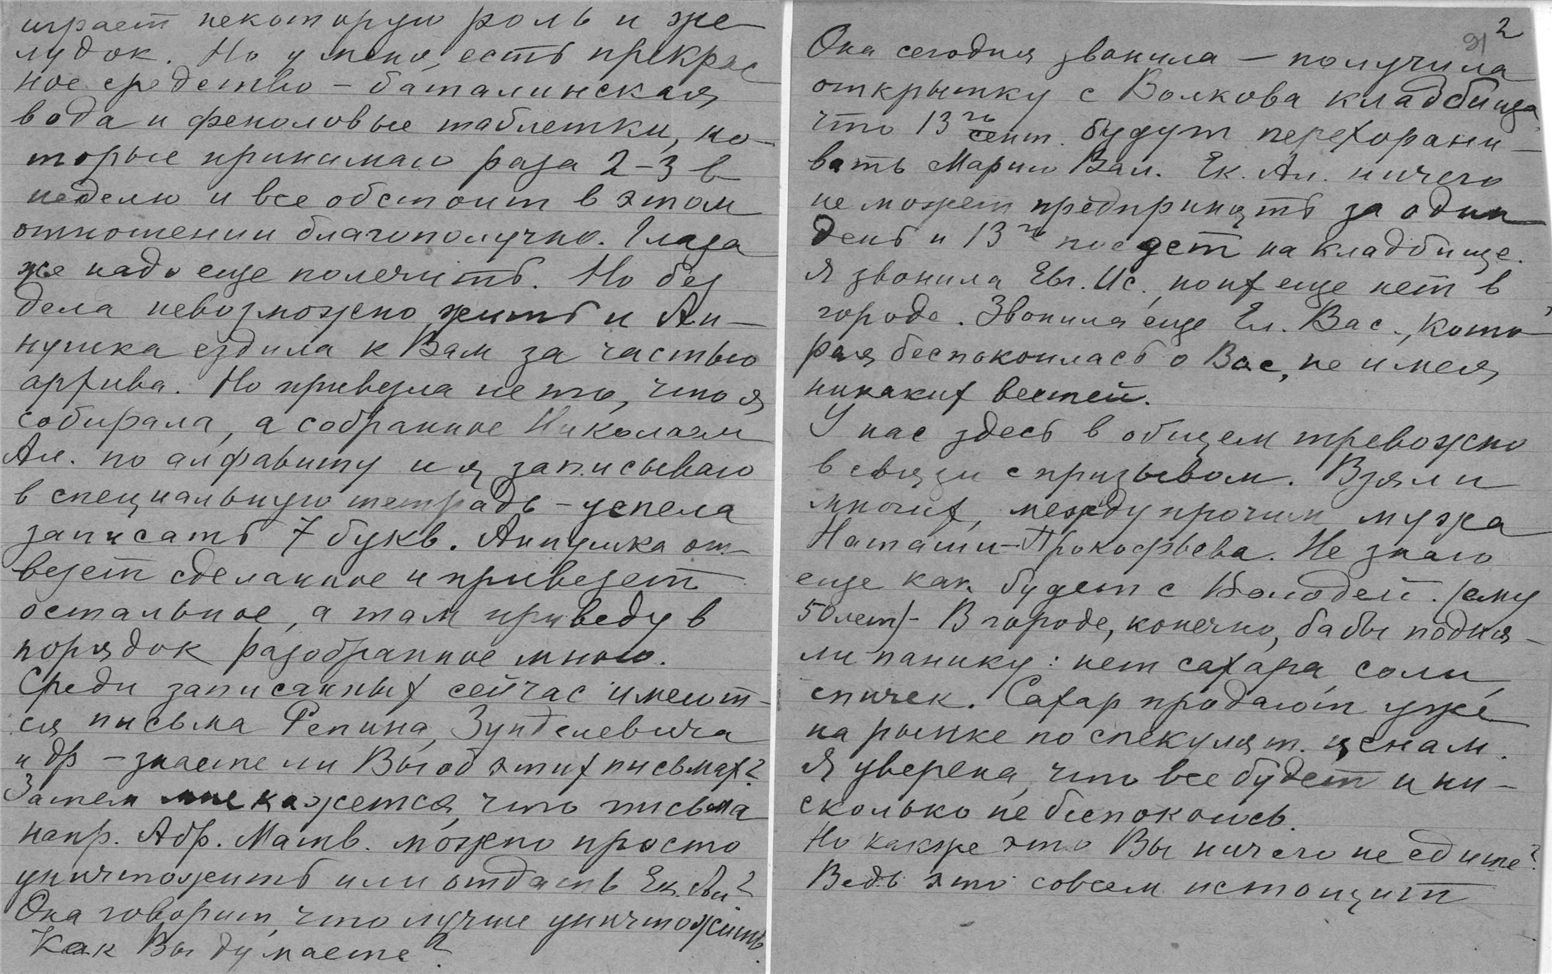 играет некоторую роль и же-
лудок. Но у меня есть прекрас
ное средство – баталинская
вода и феноловые таблетки, ко-
торые принимаю раза 2–3 в
неделю и все обстоит в этом
отношении благополучно. Глаза
же надо еще полечить. Но без
дела невозможно жить и Ан-
нушка ездила к Вам за частью
архива. Но привезла не то, что я
собирала, а собранное Николаем
Ал. по алфавиту и я записываю
в специальную тетрадь – успела
записать 7 букв. Аннушка от-
везет сделанное и привезет
остальное, а там приведу в
порядок разобранное мною.
Среди записанных сейчас имеют-
ся письма Репина, Зунделевича
и др – знаете ли Вы об этих письмах?
Затем мне кажется, что письма
напр. Адр. Матв. можно просто
уничтожить или отдать Ек. Ал.?
Она говорит, что лучше уничтожить.
Как Вы думаете?
2
Она сегодня звонила – получила
открытку с Волкова кладбища
что 13го сент. будут перехорани-
вать Марию Вал. Ек. Ал. ничего
не может предпринять за один
день и 13го поедет на кладбище.
Я звонила Евг. Ис., но их еще нет в
городе. Звонила еще Ел. Вас., кото-
рая беспокоилась о Вас, не имея
никаких вестей.
У нас здесь в общем тревожно
в связи с призывом. Взяли
многих, между прочим мужа
Наташи – Прокофьева. Не знаю
еще как будет с Володей. (ему
50 лет) – В городе, конечно, бабы подня-
ли панику: нет сахара, соли,
спичек. Сахар продают уже
на рынке по спекулят. ценам.
Я уверена, что все будет и ни-
сколько не беспокоюсь.
Но как же это Вы ничего не едите?
Ведь это совсем истощит